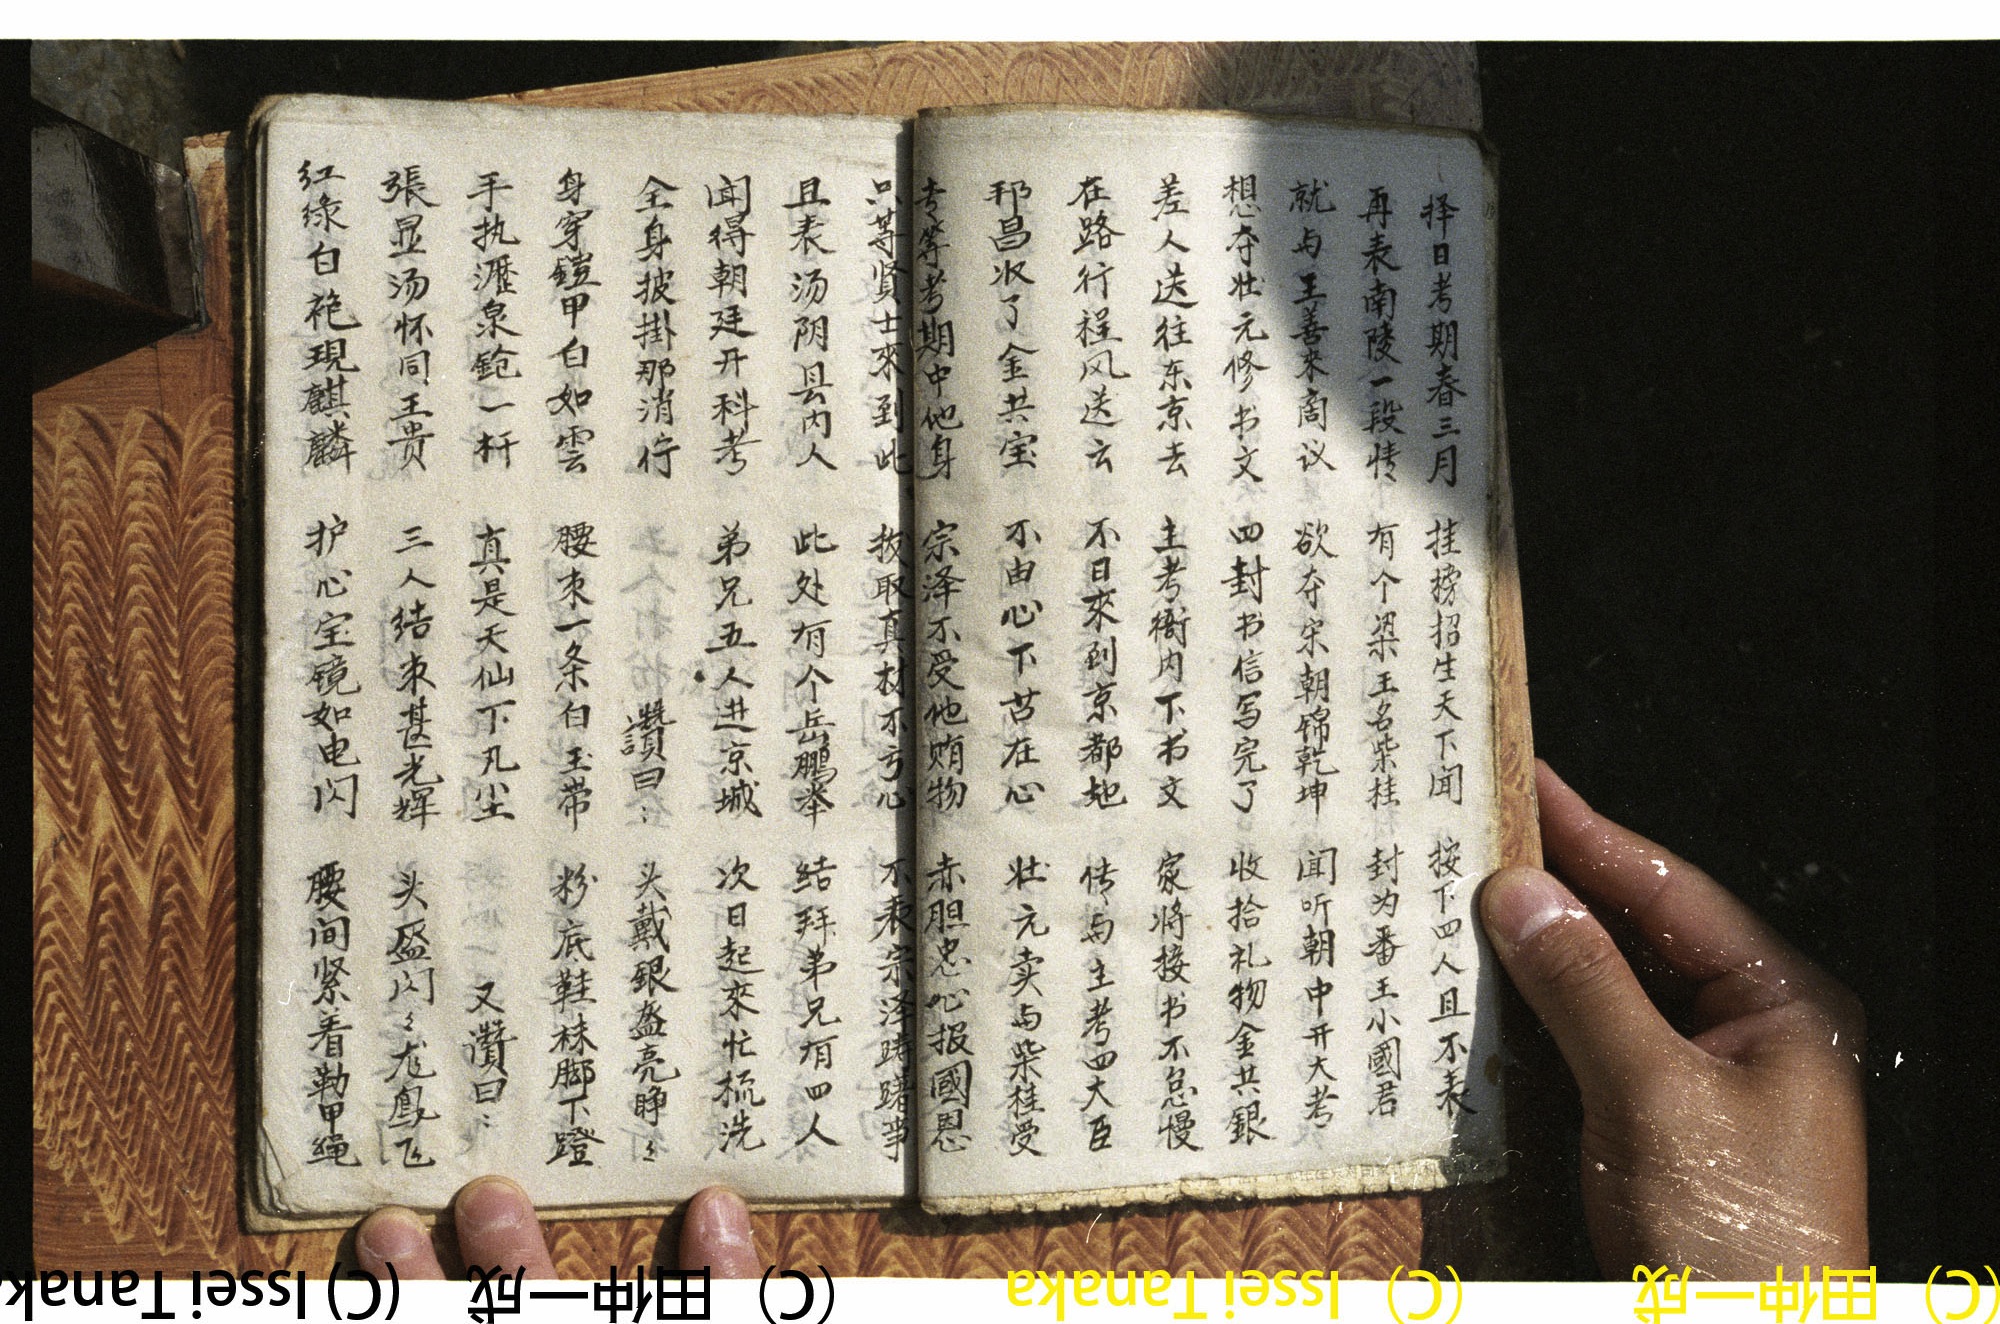 择日考期春三月 挂榜招生天下闻 按下四人且不表
再表南陵一段情 有个梁王名柴桂 封为番王小國君
就与王善來商议 欲夺宋朝锦乾坤 闻听朝中开大考
想夺壮元修书文 四封书信写完了 收拾礼物金共銀
差人送往东京去 主考衙内下书文 家将接书不怠慢
在路行程风送云 不日來到京都地 传与主考四大臣
邦昌收了金共宝 不由心下苦在心 壮元卖与柴桂受
专等考期中他身 宗泽不受他贿物 赤胆忠心报國恩
只等贤士來到此 拔取真材不亏心 不表宗泽踌躇事
且表汤阴县内人 此处有个岳鹏举 结拜弟兄有四人
闻得朝廷开科考 弟兄五人进京城 次日起來忙梳洗
全身披掛那消停 讚曰： 头戴銀盔亮睁々
身穿鎧甲白如雲 腰束一条白玉带 粉底鞋袜脚下蹬
手执瀝泉鎗一杆 真是天仙下凡尘 又讚曰：
張显汤怀同王贵 三人结束甚光辉 头盔闪々龙鳳飞
红绿白袍現麒麟 护心宝镜如电闪 腰间紧着勒甲绳
(C) Issei Tanaka (C) 田仲一成 (C) Issei Tanaka (C) 田仲一成